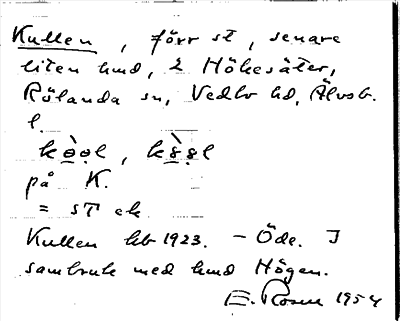 Kullen, förr st, senare
liten hmd, i Hökesäter,
Rölanda sn, Vedbo hd, Älvsb.
l.
på K.
= sT ek
Kullen hb 1923. – Öde. I
sambruk med hmd Högen.
E. Rosen 1954